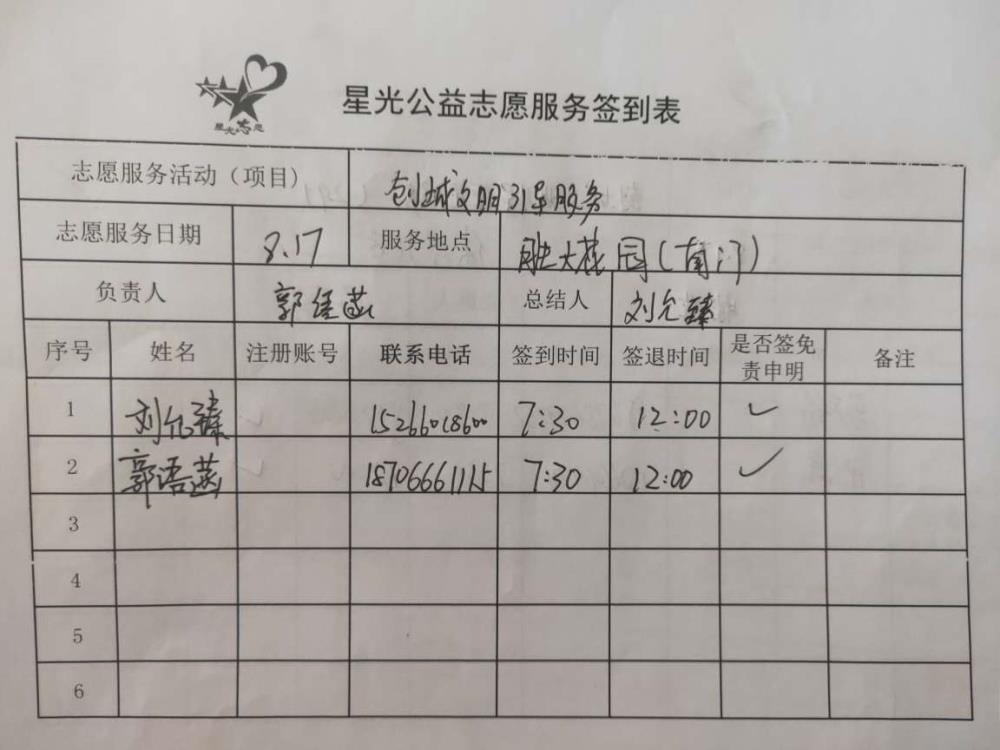 星光志愿
星光公益志愿服务签到表
志愿服务活动（项目） 创城文明引导服务
志愿服务日期 8.17 服务地点 胜大花园(南门)
负责人 郭语菡 总结人 刘允臻
序号 姓名 注册账号 联系电话 签到时间 签退时间 是否签免责申明 备注
1 刘允臻 15266018600 7:30 12:00 ✓
2 郭语菡 18706661115 7:30 12:00 ✓
3
4
5
6